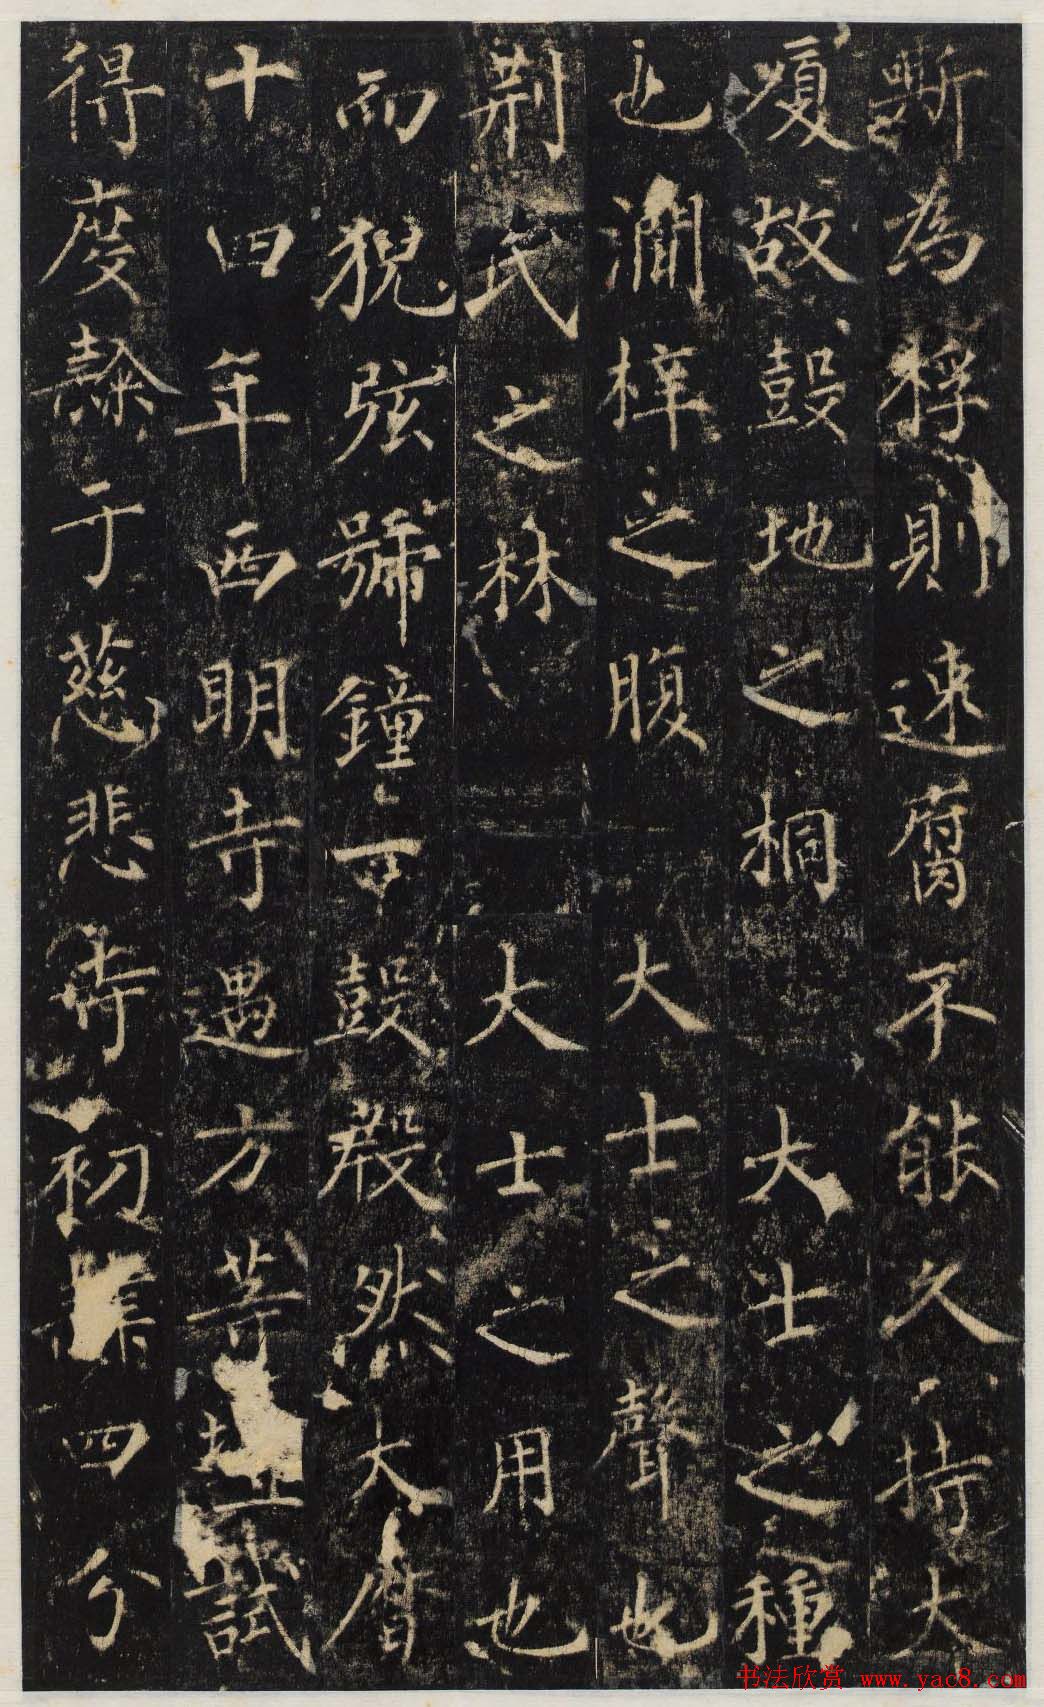 斯為桴則速腐不能久持大
廈故鼓地之桐大士之種
也澗梓之腹大士之聲也
荊氏之林大士之用也
而猊弦號鐘一鼓殷然大曆
十四年西明寺遇方等壇試
得度隸于慈悲寺初隸四分
书法欣赏 www.yac8.com